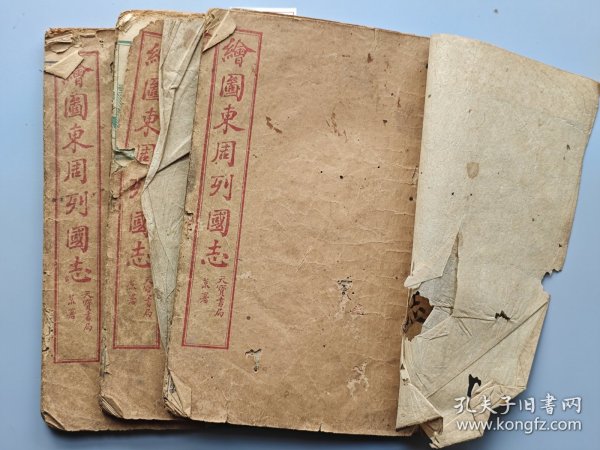 繪圖東周列國志
天寶書局
繪圖東周列國志
天寶書局
繪圖東周列國志
天寶書局
孔夫子旧书网
www.kongfz.com